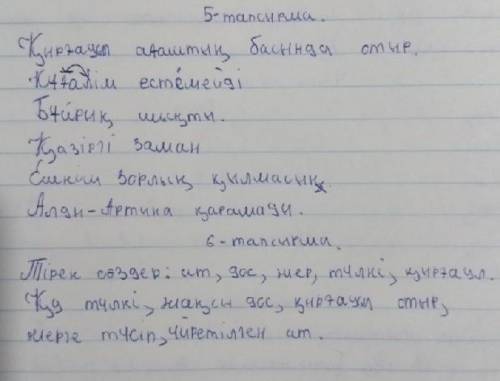 5-тапсырма.
Қырғауыл ағаштың басында отыр.
Құлағым естемейді
Бұйрық шықты.
Қазіргі заман
Ешкім зорлық қылмасын
Алды-Артына қарамады.
6-тапсырма.
Тірек сөздер: ит, дос, жер, түлкі, қырғауыл.
Қу түлкі, жақсы дос, қырғауыл отыр,
жерге түсіп, үйретілген ит.